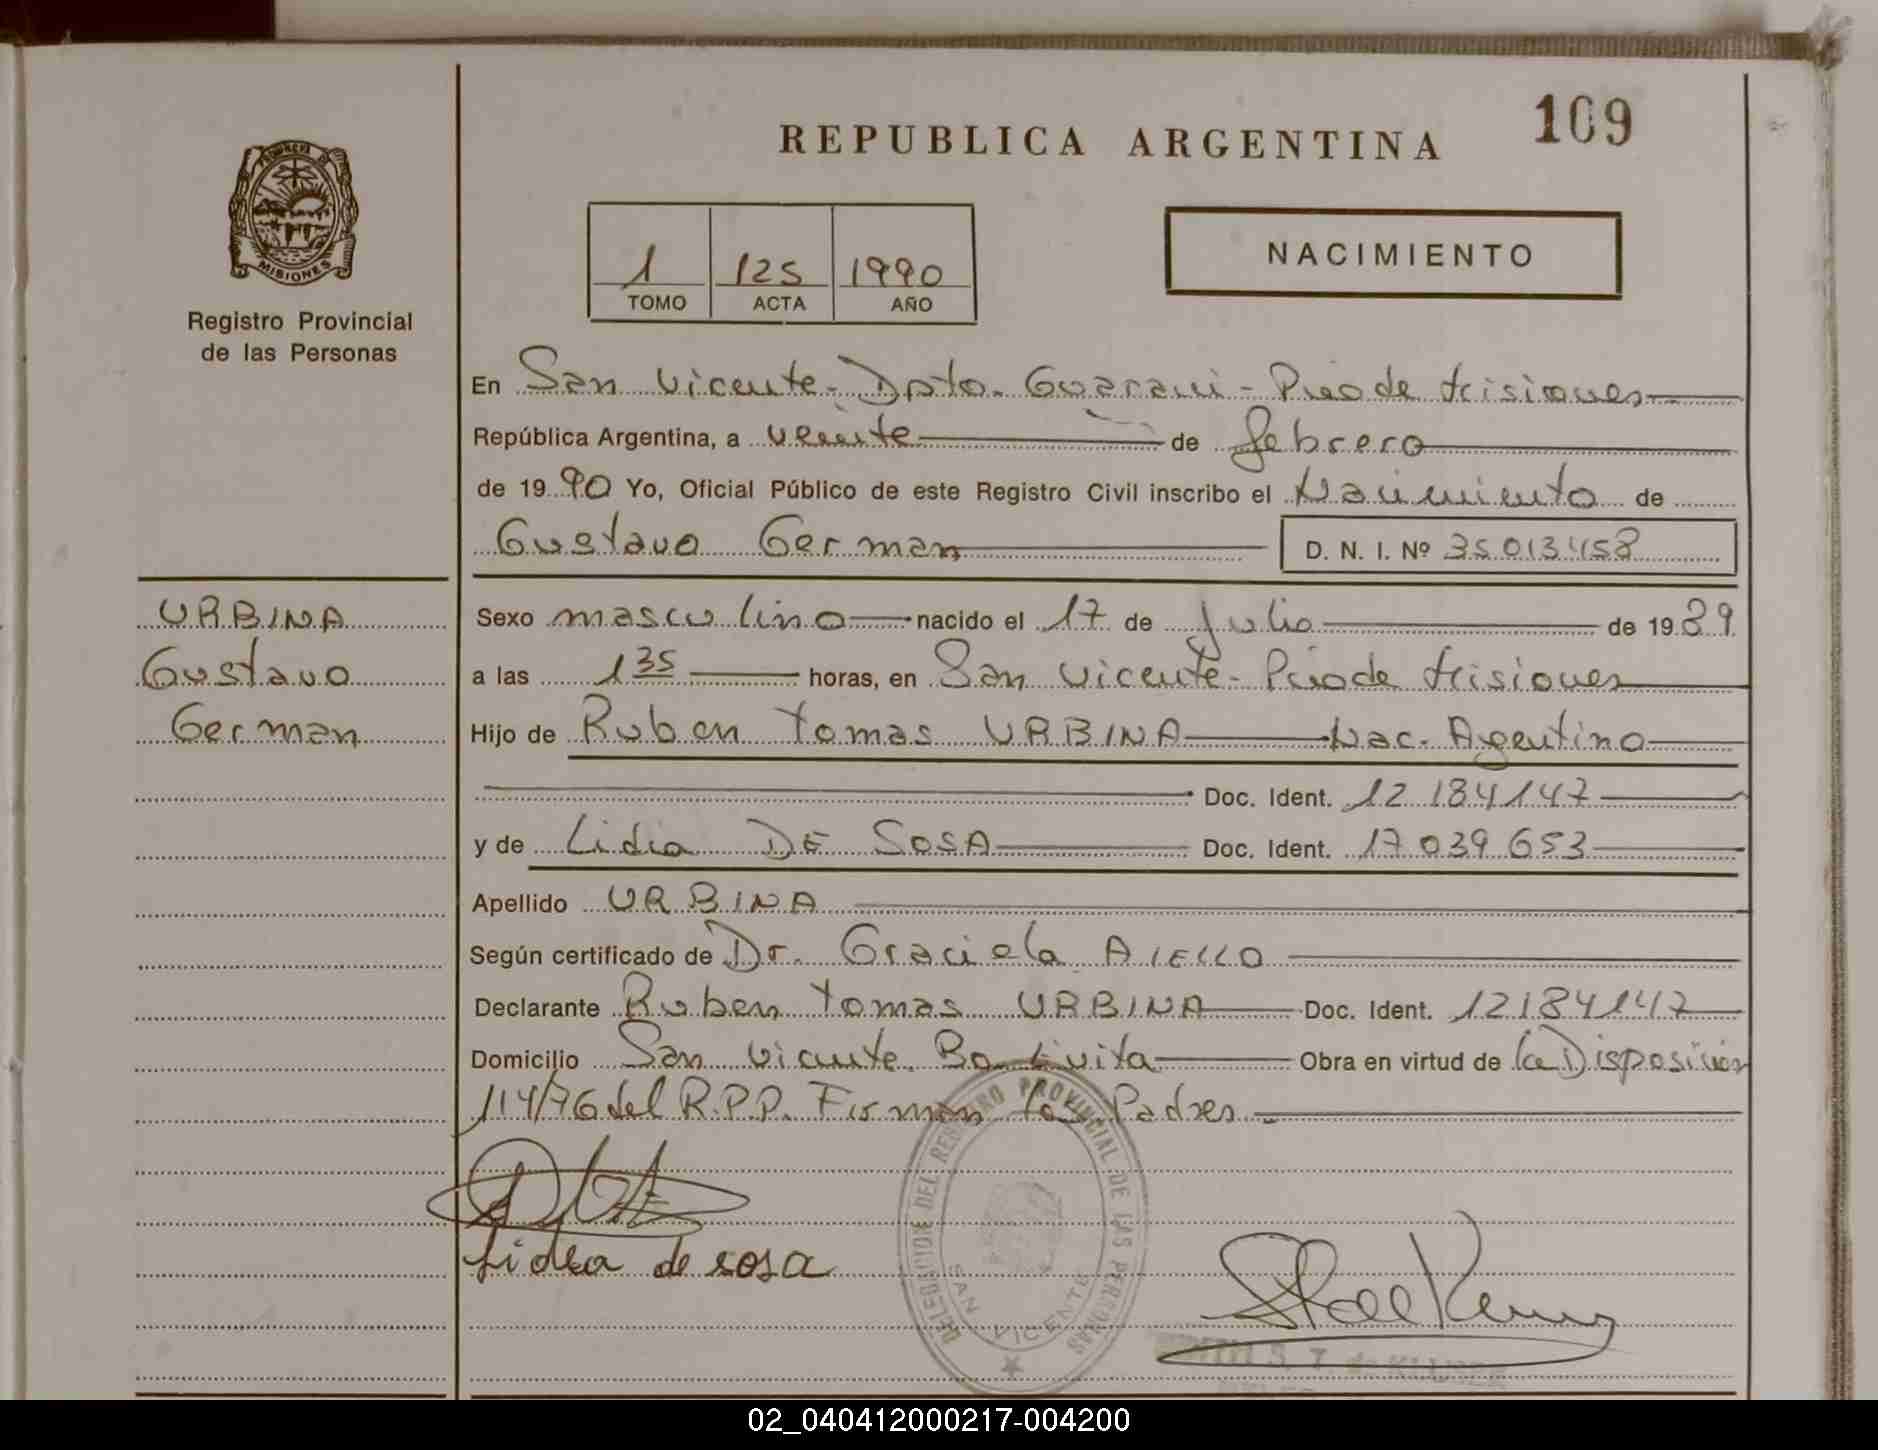 REPUBLICA ARGENTINA
109
PROVINCIA DE
MISIONES
Registro Provincial
de las Personas
1 125 1990
TOMO ACTA AÑO
NACIMIENTO
En San Vicente - Dpto. Guarani - Pcia de Misiones
República Argentina, a veinte de febrero
de 1990 Yo, Oficial Público de este Registro Civil inscribo el Nacimiento de
Gustavo German D. N. I. Nº 35013458
URBINA
Gustavo
German
Sexo masculino nacido el 17 de Julio de 1989
a las 1 35 horas, en San Vicente - Pcia de Misiones
Hijo de Ruben Tomas URBINA Nac. Argentino
Doc. Ident. 12 184147
y de Lidia DE SOSA Doc. Ident. 17 039 653
Apellido URBINA
Según certificado de Dr. Graciela AIELLO
Declarante Ruben Tomas URBINA Doc. Ident. 12184147
Domicilio San Vicente. Bo Evita Obra en virtud de la Disposición
114/76 del R.P.P. Firman los Padres
Lidia de sosa
DELEGACION DEL REGISTRO PROVINCIAL DE LAS PERSONAS
SAN VICENTE
S. T. de
02_040412000217-004200